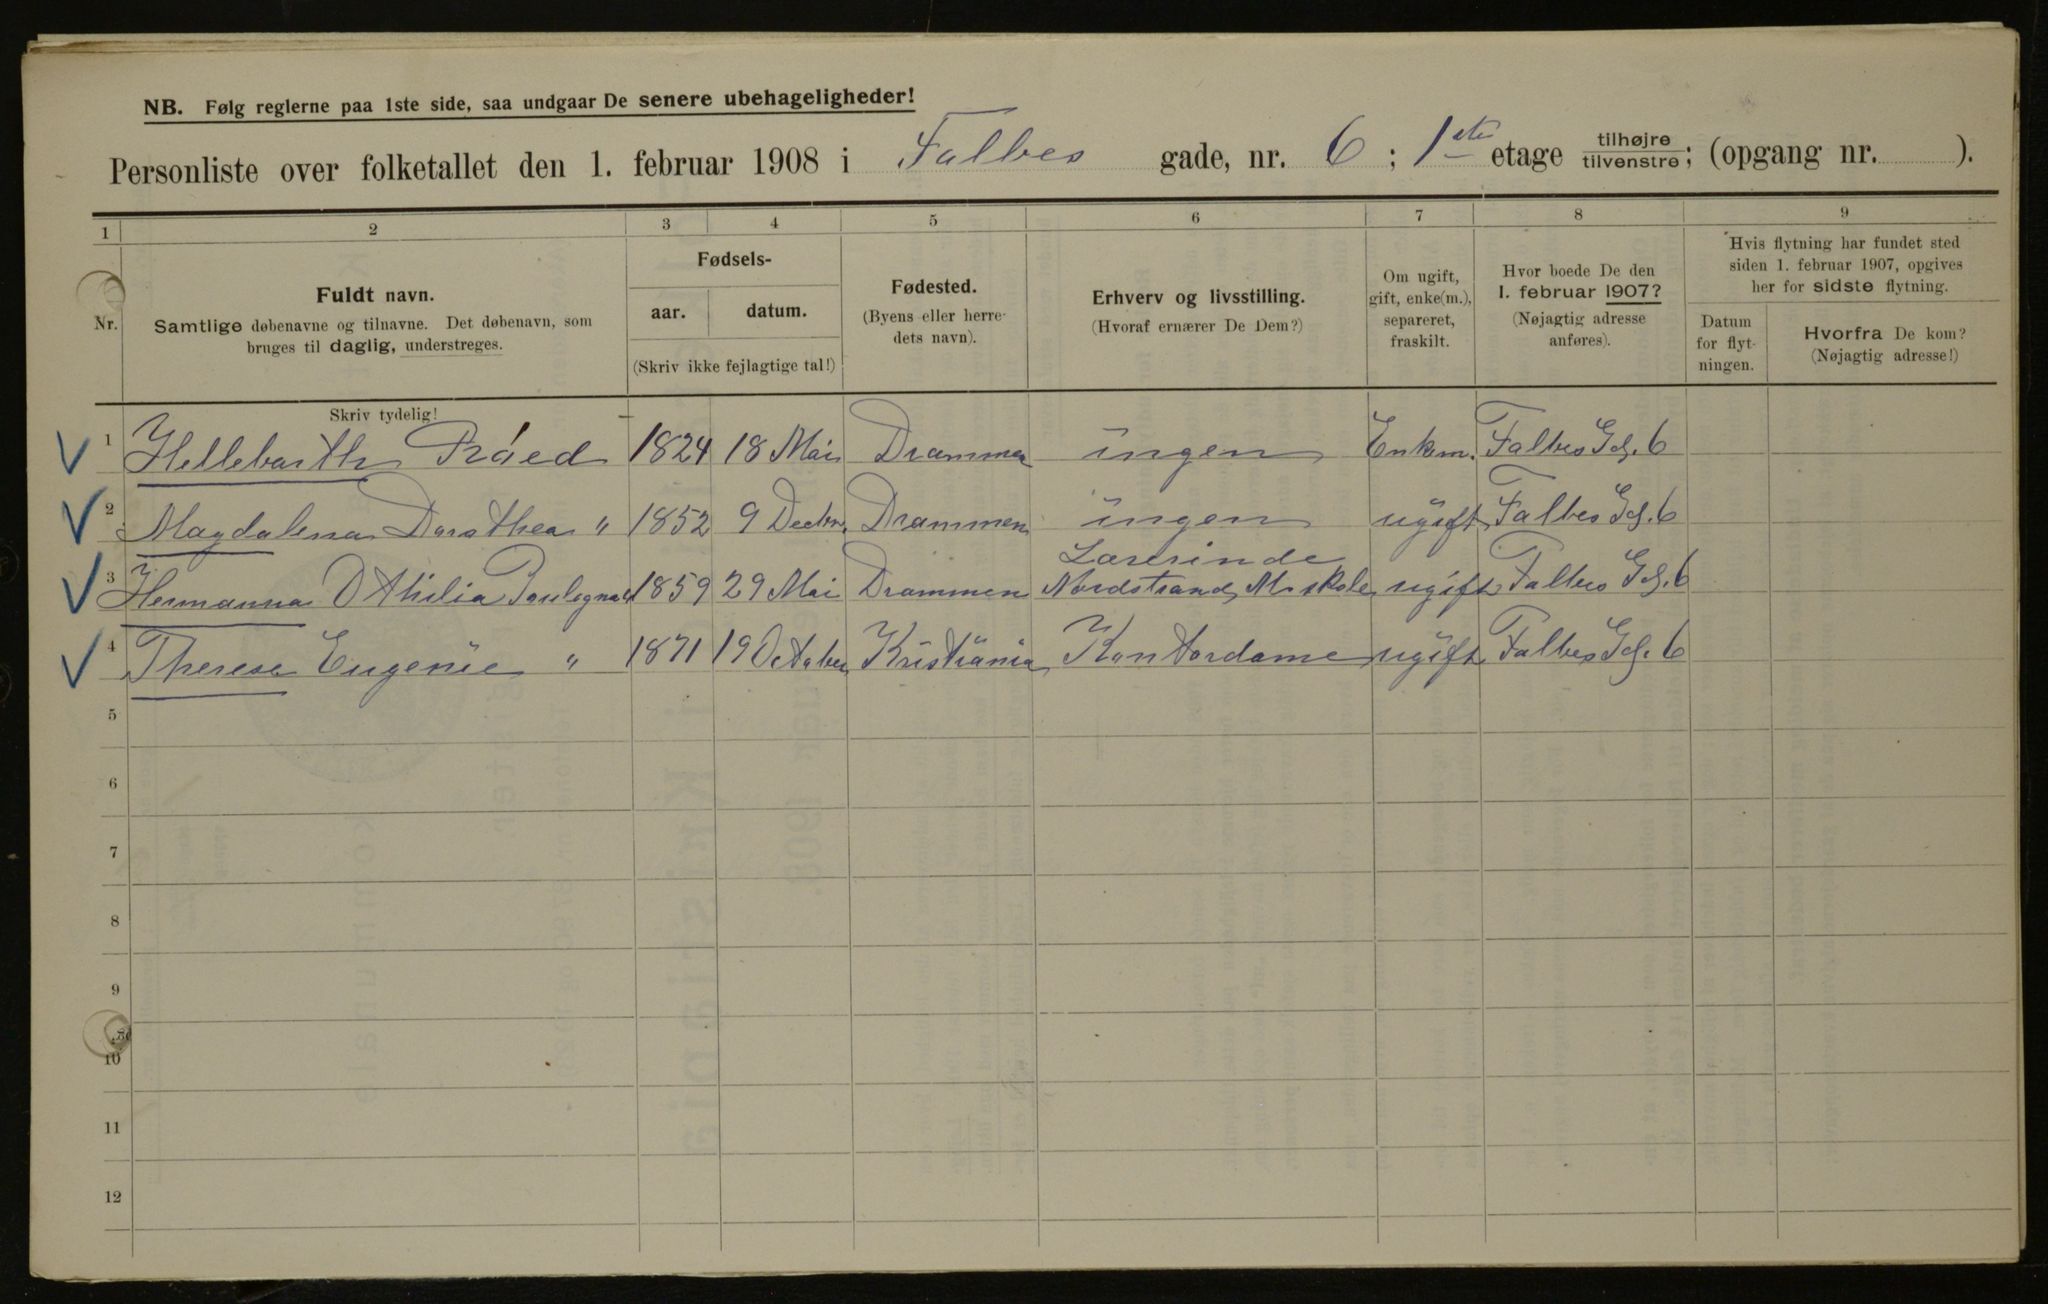 NB. Følg reglerne paa 1ste side, saa undgaar De senere ubehageligheder!
Personliste over folketallet den 1. februar 1908 i Falbes gade, nr. 6 ; 1ste etage tilhøjre tilvenstre ; (opgang nr. ).
1 2 3 4 5 6 7 8 9
Nr.
Fuldt navn.
Samtlige døbenavne og tilnavne. Det døbenavn, som
bruges til daglig, understreges.
Fødsels-
aar. datum.
(Skriv ikke fejlagtige tal!)
Fødested.
(Byens eller herre-
dets navn).
Erhverv og livsstilling.
(Hvoraf ernærer De Dem?)
Om ugift,
gift, enke(m.),
separeret,
fraskilt.
Hvor boede De den
1. februar 1907?
(Nøjagtig adresse
anføres).
Hvis flytning har fundet sted
siden 1. februar 1907, opgives
her for sidste flytning.
Datum
for flyt-
ningen.
Hvorfra De kom?
(Nøjagtig adresse!)
Skriv tydelig!
1 Hellebarth 1824 18 Mai Drammen ingen Enkem. Falbes Gd. 6
2 Magdalena Dorothea " 1852 9 Decbr Drammen ingen ugift Falbes Gd. 6
Lærerinde
3 Hermanna Othilia 1859 29 Mai Drammen Nordstrand M skole ugift Falbes Gd. 6
4 Therese Eugenie " 1871 19 October Kristiania Kontordame ugift Falbes Gd. 6
5
6
7
8
9
10
11
12